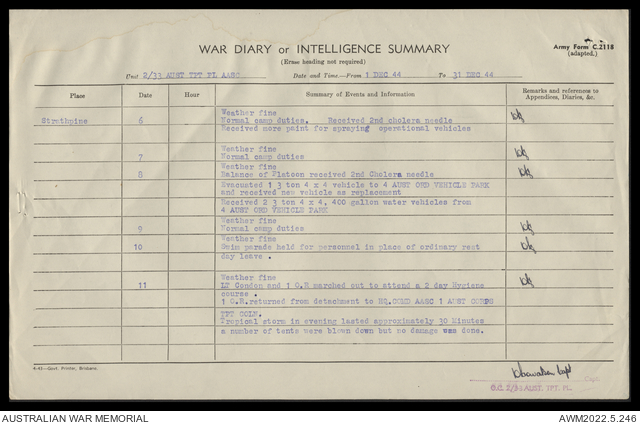 WAR DIARY or INTELLIGENCE SUMMARY
Army Form C.2118
(adapted.)
(Erase heading not required)
Unit 2/33 AUST TPT PL AASC Date and Time—From 1 DEC 44 To 31 DEC 44
Place Date Hour Summary of Events and Information Remarks and references to Appendices, Diaries, &c.
Weather fine
Strathpine 6 Normal camp duties. Received 2nd cholera needle
Received more paint for spraying operational vehicles
Weather fine
7 Normal camp duties
Weather fine
8 Balance of Platoon received 2nd Cholera needle
Evacuated 1 3 ton 4 x 4 vehicle to 4 AUST ORD VEHICLE PARK
and received new vehicle as replacement
Received 2 3 ton 4 x 4, 400 gallon water vehicles from
4 AUST ORD VEHICLE PARK
Weather fine
9 Normal camp duties
Weather fine
10 Swim parade held for personnel in place of ordinary rest
day leave .
Weather fine
11 LT Condon and 1 O.R marched out to attend a 2 day Hygiene
course .
1 O.R. returned from detachment to HQ.COMD AASC 1 AUST CORPS
TPT COLN.
Tropical storm in evening lasted approximately 30 Minutes
a number of tents were blown down but no damage was done.
4-43—Govt. Printer, Brisbane.
Capt
O.C. 2/33 AUST. TPT. PL.
AUSTRALIAN WAR MEMORIAL AWM2022.5.246